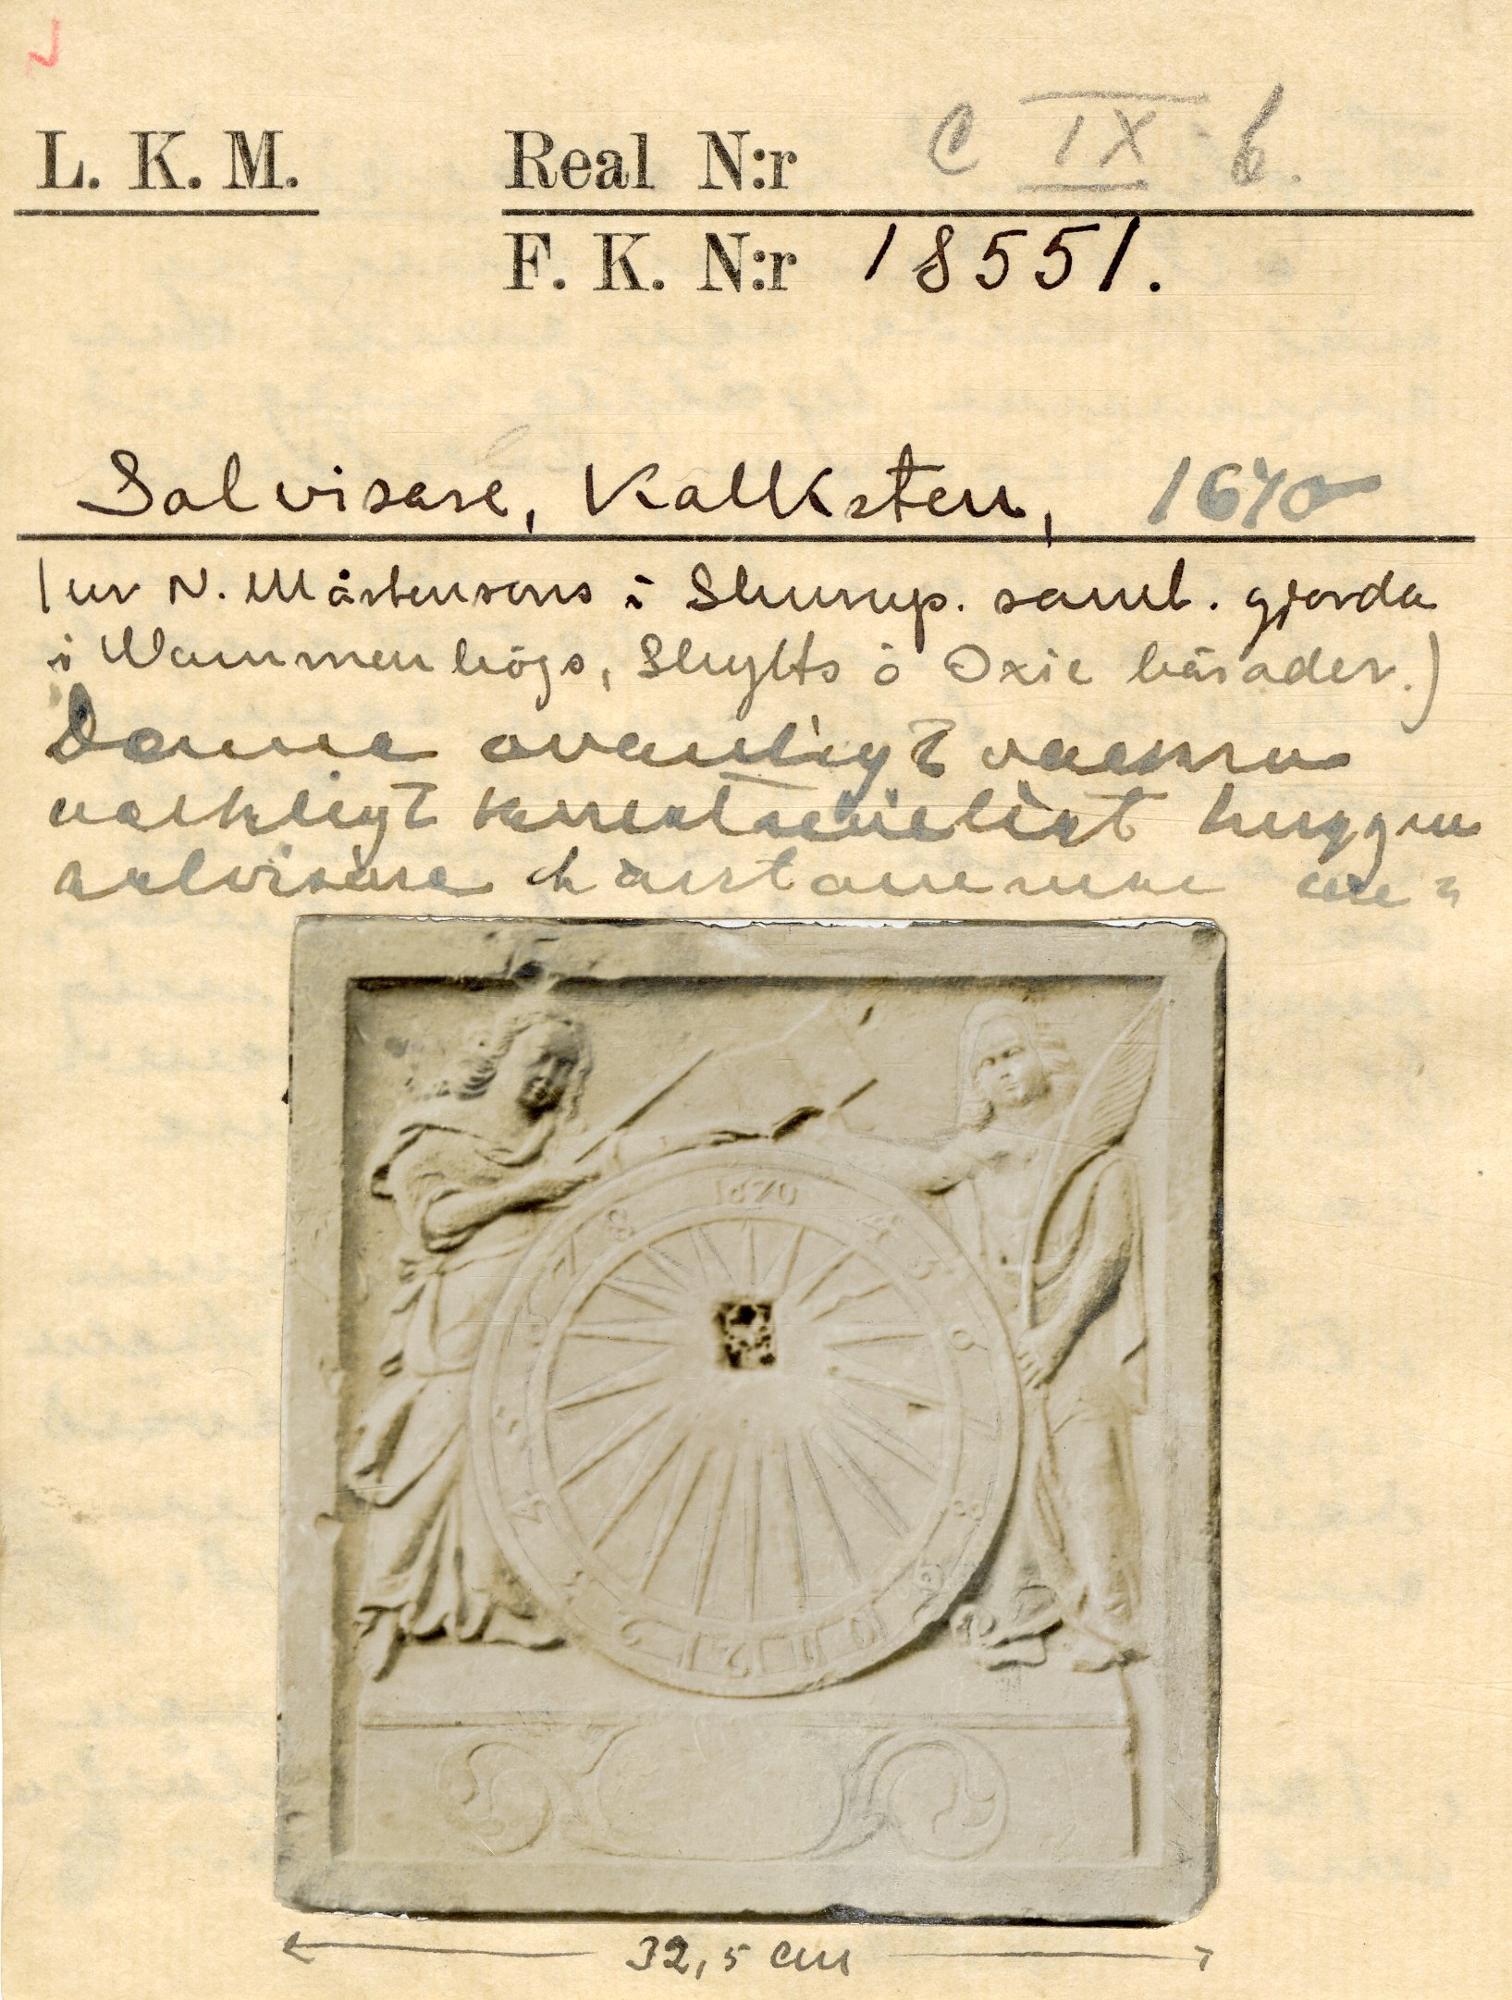 L. K. M. Real N:r C IX b.
F. K. N:r 18551.
Solvisare, Kalksten, 1670
(ur N. Mårtensons i Skurup. saml. gjorda
i Wammenhögs, Skytts o Oxie härader.)
Denna ovanligt vackra
verkligt konstnärligt huggna
solvisare härstammar
1670
8 4
7 5
6
7
8
9
3
2 1 12 11 10
32,5 cm